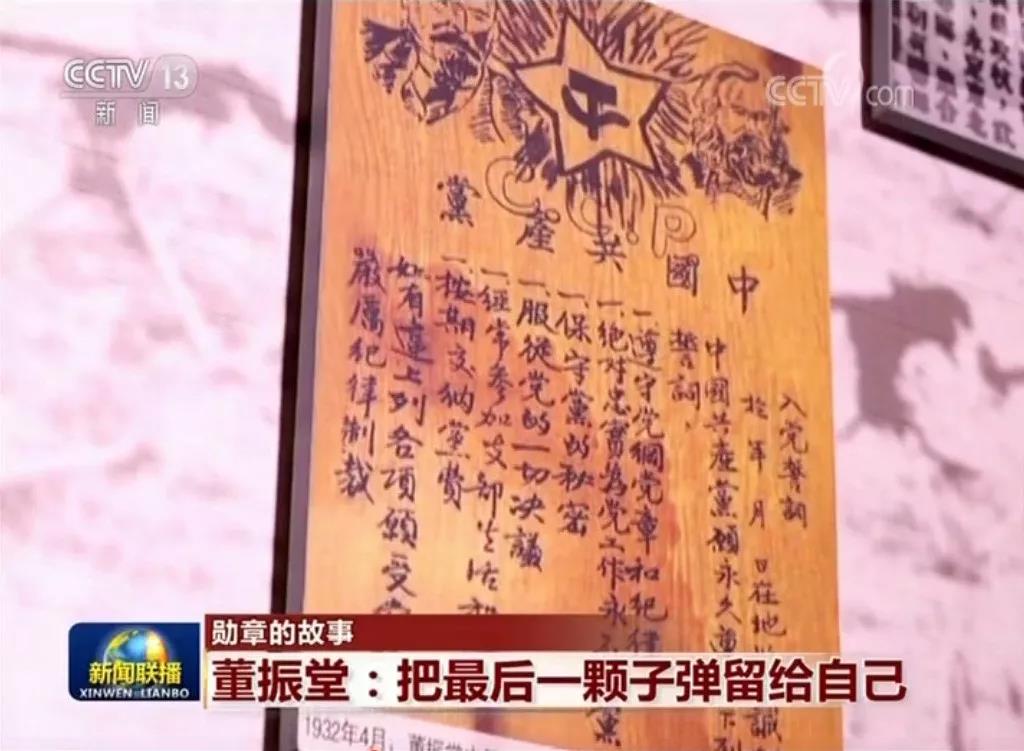 CCTV 13
新闻
CCTV.com
C.C.P
中國共產黨
入党誓詞
於 年 月 日在地
中國共產黨願永久遵
誓詞、
一遵守党綱党章和紀律
一絶对忠實為党工作永不
一保守黨的秘密
一服從党的一切決議
一經常參加支部生活
一按期交納黨費
如有違上列各項願受
嚴厲紀律制裁
勋章的故事
新闻联播
XINWEN LIANBO
董振堂：把最后一颗子弹留给自己
1932年4月，董振堂